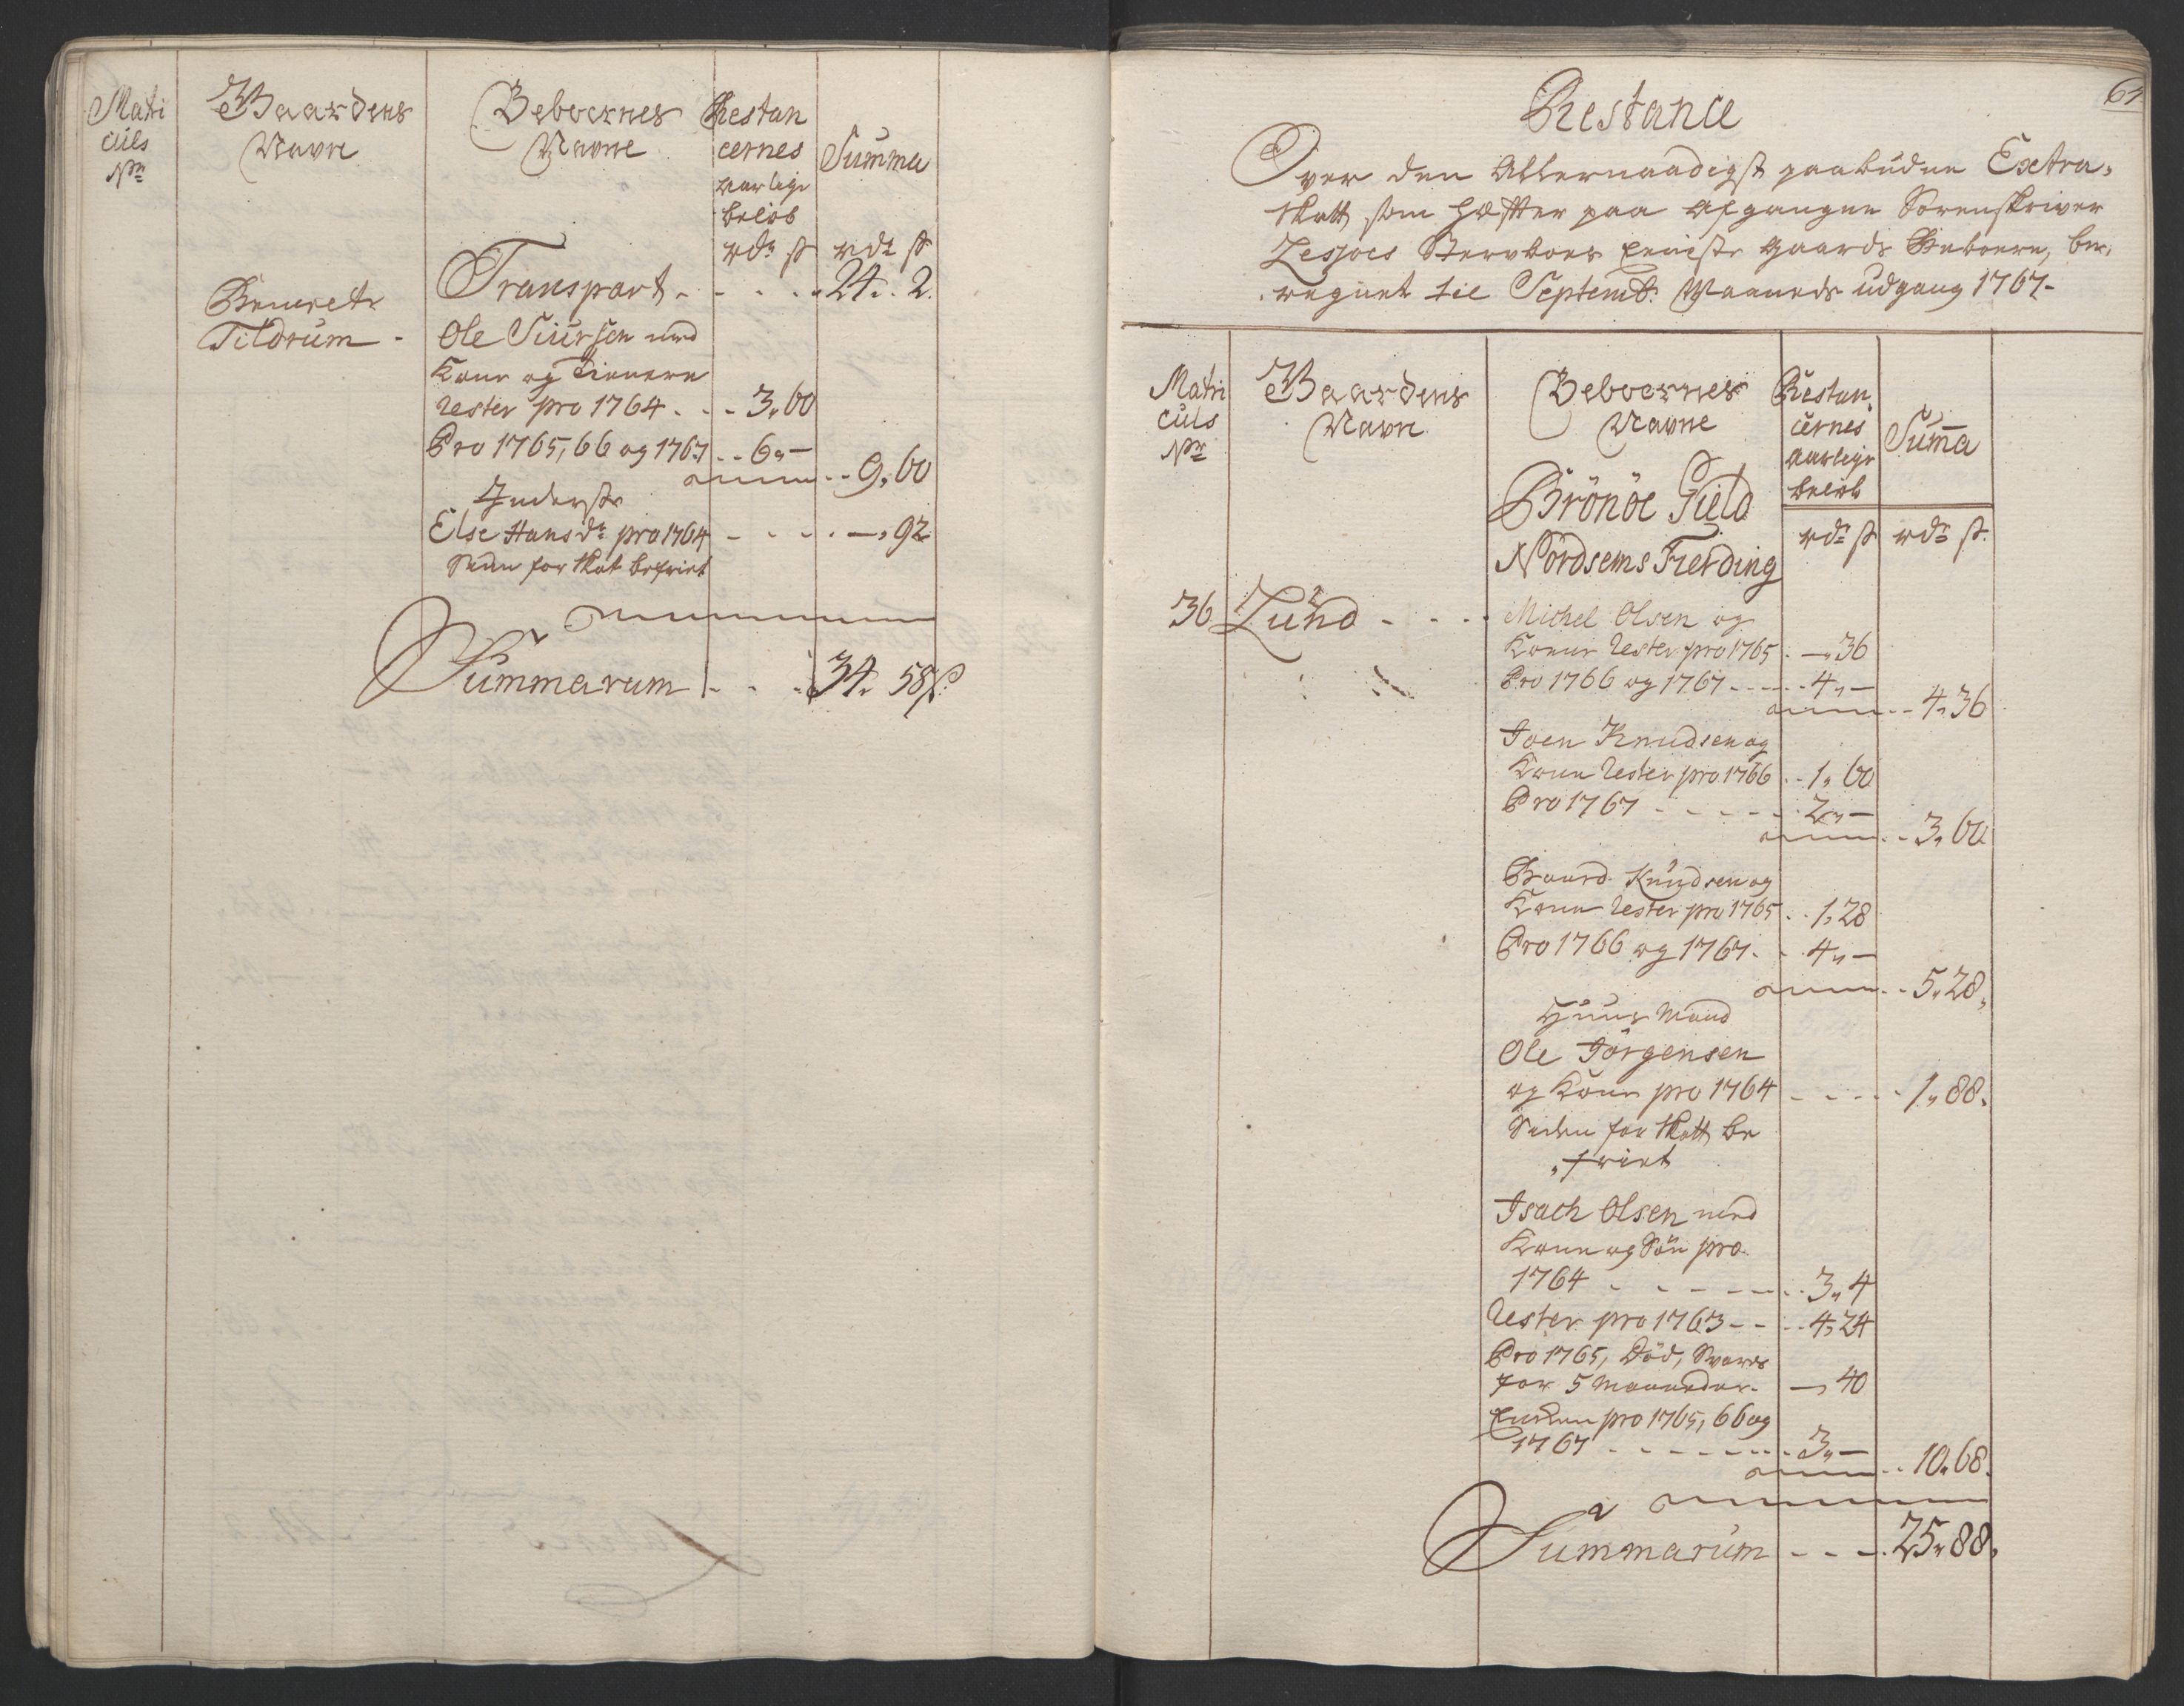 Matri
culs
Nr
Gaardens
Navne
Beboernes
Navne
Restan
cernes
aarlige
beløb
rdr ß
Summa
rdr ß
Transport - - - - - 24. 2.
Tildrum -
Ole Siursen med
Kone og Tienere
Rester pro 1764 . . - 3„60
Pro 1765, 66 og 1767 . . 6„—
9„60
Inderste
Else Hansdr pro 1764 - - - - —„92
Siden for Skat befriet
Summarum - - - 34. 58ß.
Restance
Over den Allernaadigst paabudne Extra-
Skatt, som hæfter paa Afgangne Sorenskriver
Stervboes Gaards Beboere, be-
regnet til Septemb: Maaneds udgang 1767-
Matri
culs
Nr
Gaardens
Navne
Beboernes
Navne
Restan-
cernes
Aarlige
beløb
Suma
Brönöe Gield
rdr ß rdr ß.
Nordsems Fierding
36 Lund - - - - Michel Olsen og
Kone Rester pro 1765 . —„36
Pro 1766 og 1767 - - - - 4„—
4„36
Joen Knudsen og
Kone Rester pro 1766 . - 1„60
Pro 1767 - - - - - 2„—
3„60
Baard Knudsen og
Kone Rester pro 1765 . . 1„28
Pro 1766 og 1767 - - 4„—
5„28„
Huus Mand
Ole Jörgensen
og Kone pro 1764 - - - - - 1„88„
Siden for Skatt be
„friet
Isach Olsen med
Kone og Sön pro
1764 - - - - - - 3„4
Rester pro 1763 - - - - 4„24
Pro 1765, Död, Svares
for 5 Maaneder - —„40
Enken pro 1765, 66 og
1767 - - - - - - - 3„—
10„68.
Summarum - - - 25„88„